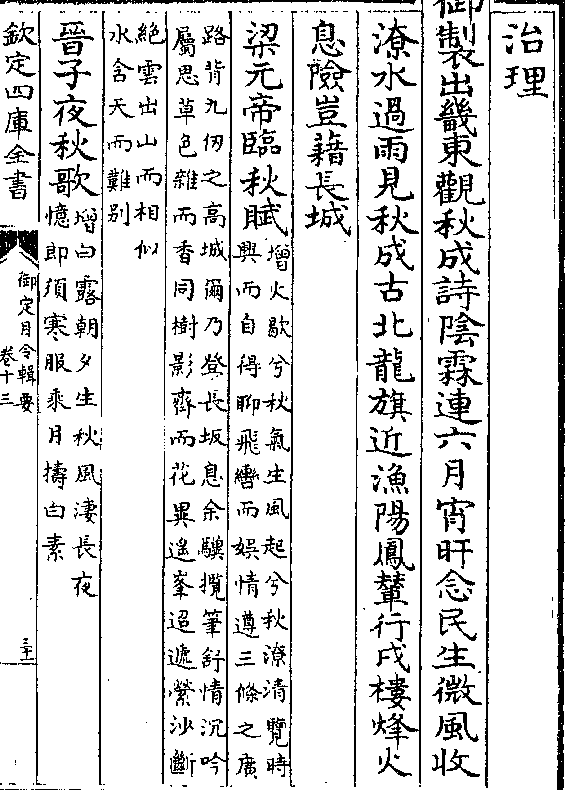 治理
御製出畿東觀秋成詩陰霖連六月宵旰念民生微風收
潦水過雨見秋成古北龍旗近漁陽鳳輦行戍樓烽火
息險豈藉長城
梁元帝臨秋賦
增火歇兮秋氣生風起兮秋潦清覽時
興而自得聊飛轡而娯情遵三條之廣
路背九仞之高城爾乃登長坂息余驥攬筆舒情沉吟
屬思草色雜而香同樹影齊而花異遥峯迢遞縈沙斷
絶雲出山而相似
水含天而難别
晉子夜秋歌
增白露朝夕生秋風凄長夜
憶即須寒服乘月擣白素
欽定四庫全書
御定月令輯要
卷十三
三十二